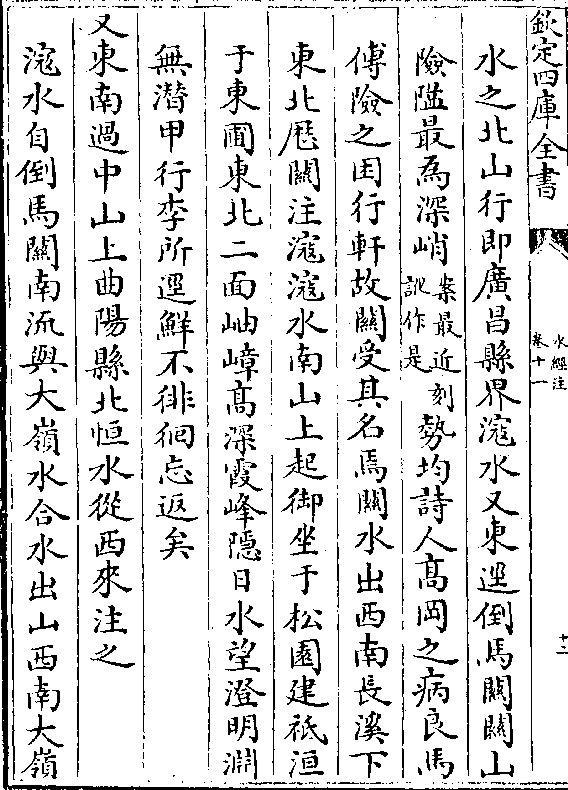 欽定四庫全書
水經注
卷十一
十二
水之北山行即廣昌縣界㴲水又東逕倒馬關關山
險隘最為深峭
案最近刻
訛作是
勢均詩人高岡之病良馬
傅險之困行軒故關受其名焉關水出西南長溪下
東北歷關注㴲㴲水南山上起御坐于松園建祇洹
于東圃東北二面岫嶂高深霞峰隱日水望澄明淵
無潛甲行李所逕鮮不徘徊忘返矣
又東南過中山上曲陽縣北恒水從西來注之
㴲水自倒馬關南流與大嶺水合水出山西南大嶺